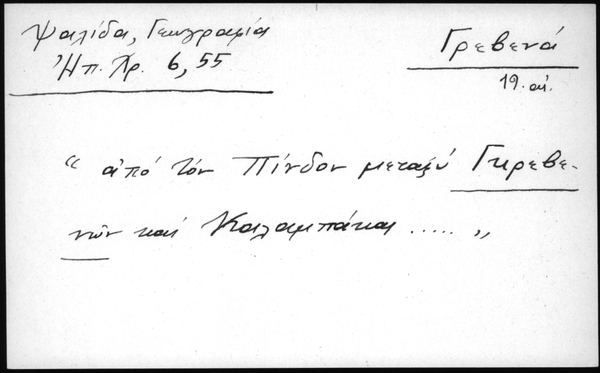 Ψαλίδα, Γεωγραφία
Ἠπ. Χρ. 6, 55
Γρεβενά
19. αἰ.
“ ἀπό τόν Πίνδον μεταξύ Γκρεβε-
νῶν καί Καλαμπάκαι ..... „